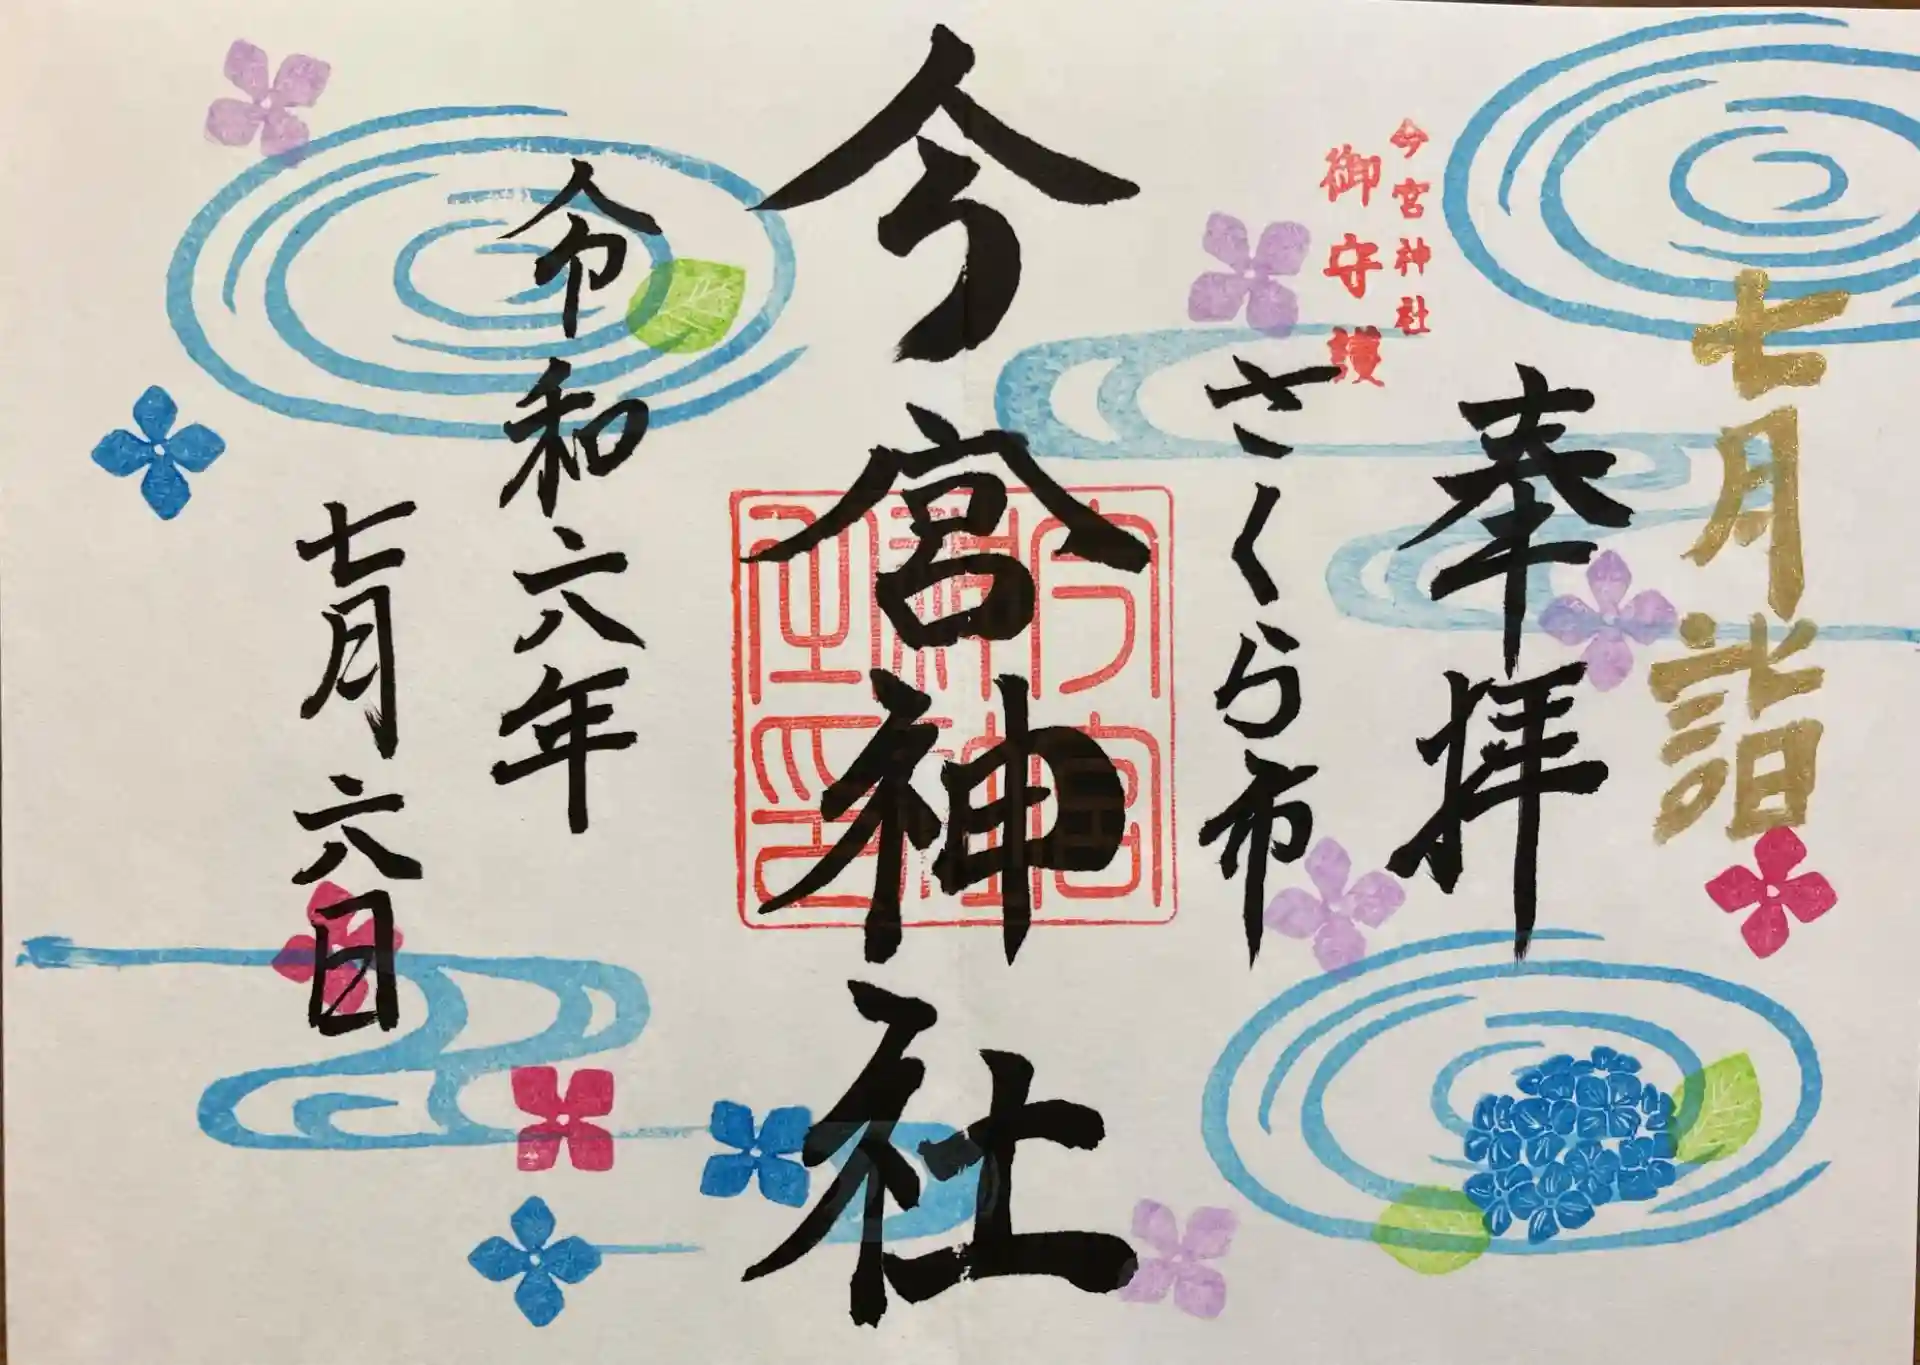 七月詣
奉拝
今宮神社
御守護
さくら市
今宮神社
今宮
神社
之印
令和六年
七月六日